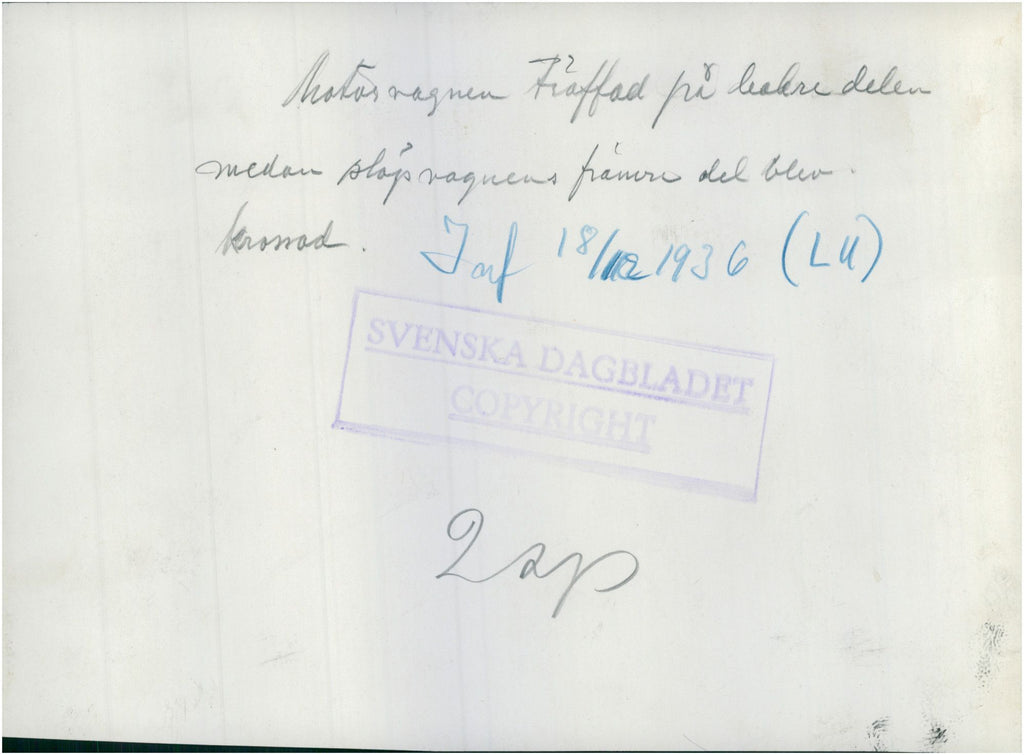 Motorvagnen träffad på bakre delen
medan släpvagnens främre del blev
krossad. Inf 18/12 1936 (LU)
SVENSKA DAGBLADET
COPYRIGHT
2 sp